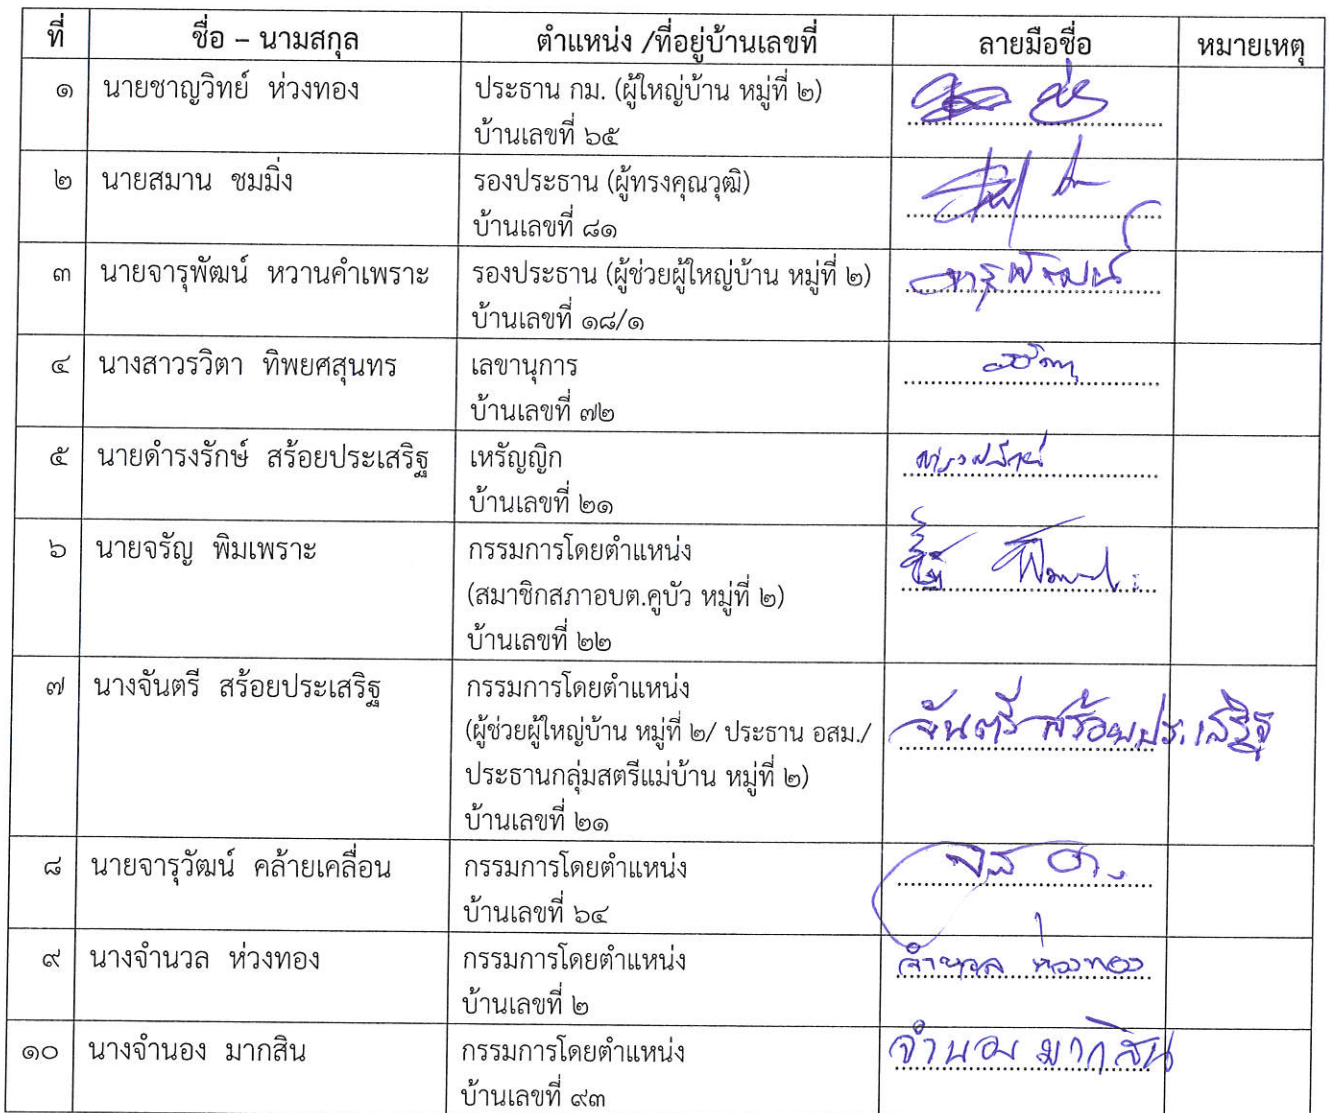 ที่ ชื่อ – นามสกุล ตำแหน่ง /ที่อยู่บ้านเลขที่ ลายมือชื่อ หมายเหตุ
๑ นายชาญวิทย์ ห่วงทอง ประธาน กม. (ผู้ใหญ่บ้าน หมู่ที่ ๒)
บ้านเลขที่ ๖๕
๒ นายสมาน ชมมิ่ง รองประธาน (ผู้ทรงคุณวุฒิ)
บ้านเลขที่ ๘๑
๓ นายจารุพัฒน์ หวานคำเพราะ รองประธาน (ผู้ช่วยผู้ใหญ่บ้าน หมู่ที่ ๒) จารุพัฒน์
บ้านเลขที่ ๑๘/๑
๔ นางสาวรวิตา ทิพยศสุนทร เลขานุการ
บ้านเลขที่ ๗๒
๕ นายดำรงรักษ์ สร้อยประเสริฐ เหรัญญิก
บ้านเลขที่ ๒๑
๖ นายจรัญ พิมเพราะ กรรมการโดยตำแหน่ง
(สมาชิกสภาอบต.คูบัว หมู่ที่ ๒)
บ้านเลขที่ ๒๒
๗ นางจันตรี สร้อยประเสริฐ กรรมการโดยตำแหน่ง
(ผู้ช่วยผู้ใหญ่บ้าน หมู่ที่ ๒/ ประธาน อสม./ จันตรี สร้อยประเสริฐ
ประธานกลุ่มสตรีแม่บ้าน หมู่ที่ ๒)
บ้านเลขที่ ๒๑
๘ นายจารุวัฒน์ คล้ายเคลื่อน กรรมการโดยตำแหน่ง
บ้านเลขที่ ๖๔
๙ นางจำนวล ห่วงทอง กรรมการโดยตำแหน่ง จำนวล ห่วงทอง
บ้านเลขที่ ๒
๑๐ นางจำนอง มากสิน กรรมการโดยตำแหน่ง จำนอง มากสิน
บ้านเลขที่ ๙๓